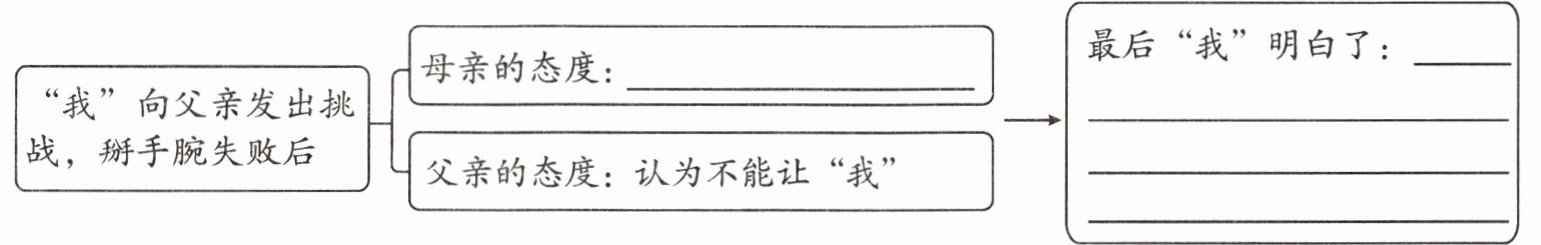 “我”向父亲发出挑
战，掰手腕失败后
母亲的态度：
父亲的态度：认为不能让“我”
最后“我”明白了：